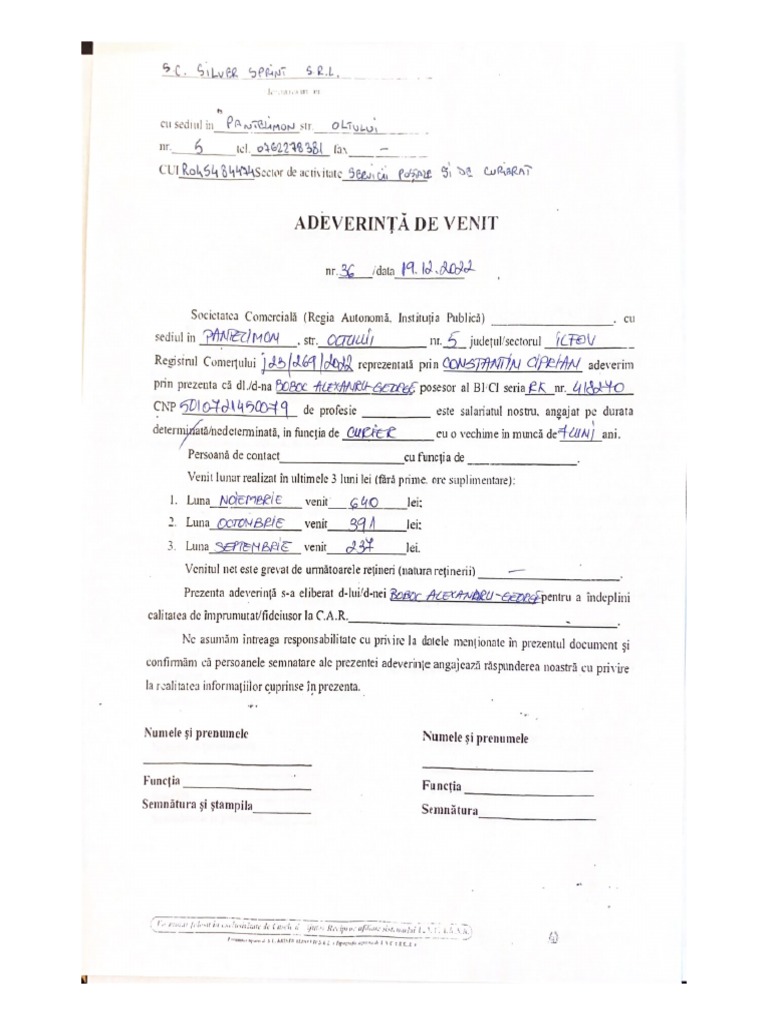 SC. SILVER SPRINT S.R.L.
cu sediul în PANTELIMON str. OLTULUI
nr. 5 tel. 0762278381 fax -
CUI RO45484474 Sector de activitate SERVICII POȘTALE ȘI DE CURIERAT
ADEVERINȚĂ DE VENIT
nr. 36 /data 19.12.2022
Societatea Comercială (Regia Autonomă, Instituția Publică) ____________, cu
sediul în PANTELIMON, str. OLTULUI nr. 5 județul/sectorul ILFOV
Registrul Comerțului J23/269/2022 reprezentată prin CONSTANTIN CIPRIAN adeverim
prin prezenta că dl./d-na BOBOC ALEXANDRU-GEORGE, posesor al BI/CI seria RK nr. 418270
CNP 5010721450079 de profesie ____________ este salariatul nostru, angajat pe durata
determinată/nedeterminată, în funcția de CURIER cu o vechime în muncă de 7 LUNI ani.
Persoană de contact ____________ cu funcția de ____________.
Venit lunar realizat în ultimele 3 luni lei (fără prime, ore suplimentare):
1. Luna NOIEMBRIE venit 640 lei;
2. Luna OCTOMBRIE venit 391 lei;
3. Luna SEPTEMBRIE venit 237 lei.
Venitul net este grevat de următoarele rețineri (natura reținerii) -
Prezenta adeverință s-a eliberat d-lui/d-nei BOBOC ALEXANDRU-GEORGE pentru a îndeplini
calitatea de împrumutat/fideiusor la C.A.R. ____________.
Ne asumăm întreaga responsabilitate cu privire la datele menționate în prezentul document și
confirmăm că persoanele semnatare ale prezentei adeverințe angajează răspunderea noastră cu privire
la realitatea informațiilor cuprinse în prezenta.
Numele și prenumele
____________
Funcția ____________
Semnătura și ștampila ____________
Numele și prenumele
____________
Funcția ____________
Semnătura ____________